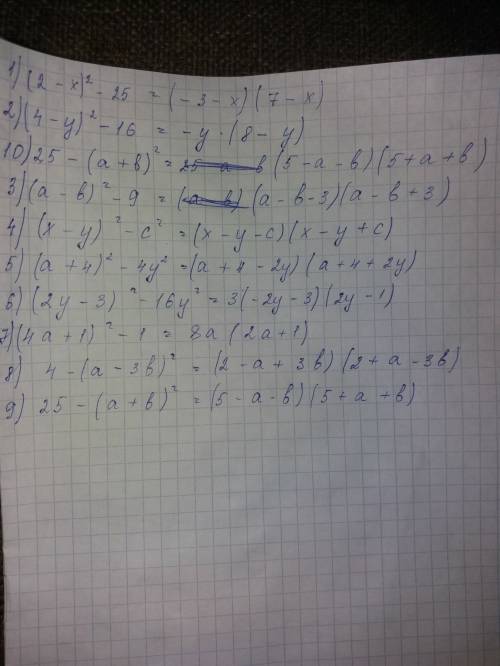 1) (2 - x)² - 25 = (-3 - x)(7 - x)
2) (4 - y)² - 16 = -y · (8 - y)
10) 25 - (a + b)² = (5 - a - b)(5 + a + b)
3) (a - b)² - 9 = (a - b - 3)(a - b + 3)
4) (x - y)² - c² = (x - y - c)(x - y + c)
5) (a + 4)² - 4y² = (a + 4 - 2y)(a + 4 + 2y)
6) (2y - 3)² - 16y² = 3(-2y - 3)(2y - 1)
7) (4a + 1)² - 1 = 8a (2a + 1)
8) 4 - (a - 3b)² = (2 - a + 3b)(2 + a - 3b)
9) 25 - (a + b)² = (5 - a - b)(5 + a + b)